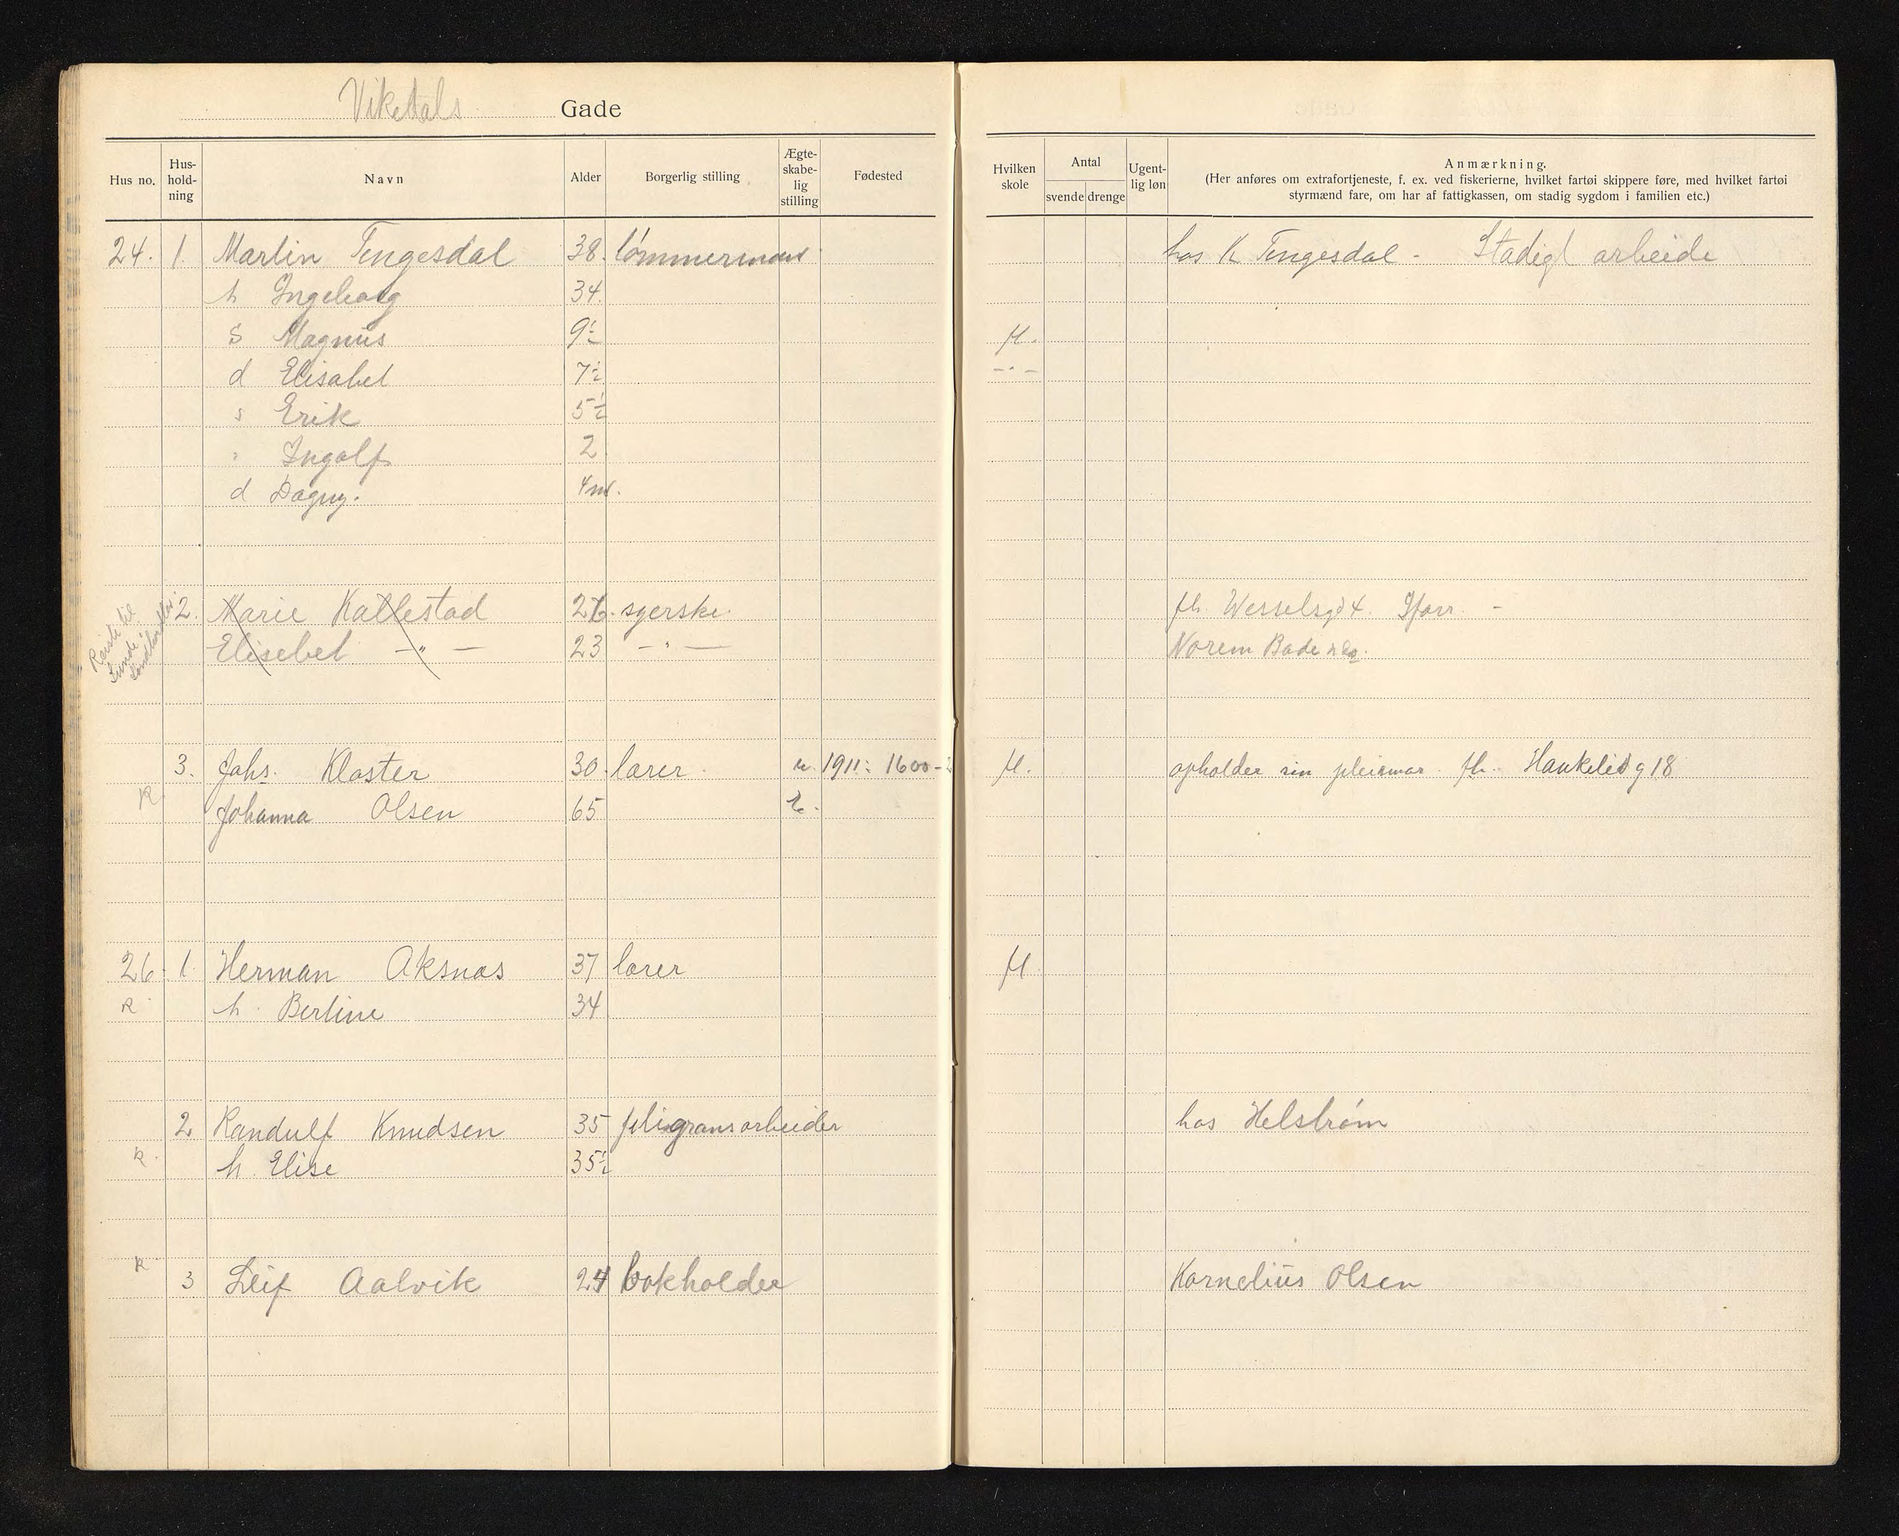 Vikedals Gade
Hus no. Hus-hold-ning Navn Alder Borgerlig stilling Ægte-skabe-lig stilling Fødested Hvilken skole Antal svende drenge Ugent-lig løn Anmærkning.
(Her anføres om extrafortjeneste, f. ex. ved fiskerierne, hvilket fartøi skippere føre, med hvilket fartøi
styrmænd fare, om har af fattigkassen, om stadig sygdom i familien etc.)
24. 1. Martin Tengesdal 38. tømmermand hos K Tengesdal - Stadigt arbeide
h Ingeborg 34.
s Magnus 9½ M.
d Elisabet 7½ - " -
s Erik 5½
" Ingolf 2
d Dagny. 4 m.
Reist til
2. Marie Kallestad 26. syerske. fh. Wesselsgd 4.
Elisebet - " - 23 - " - Norem
3. Johs. Kloster 30. lærer. u. 1911: 1600 - M. opholder sin pleiemor. fh. Haukelidg 18
R. Johanna Olsen 65 e.
26. 1. Herman Aksnas 37 lærer M
R. h. Berline 34
2 Randulf Knudsen 35 filigransarbeider hos Helstrøm
R. h. Elise 35½
R
3 Leif Aalvik 24 bokholder Kornelius Olsen